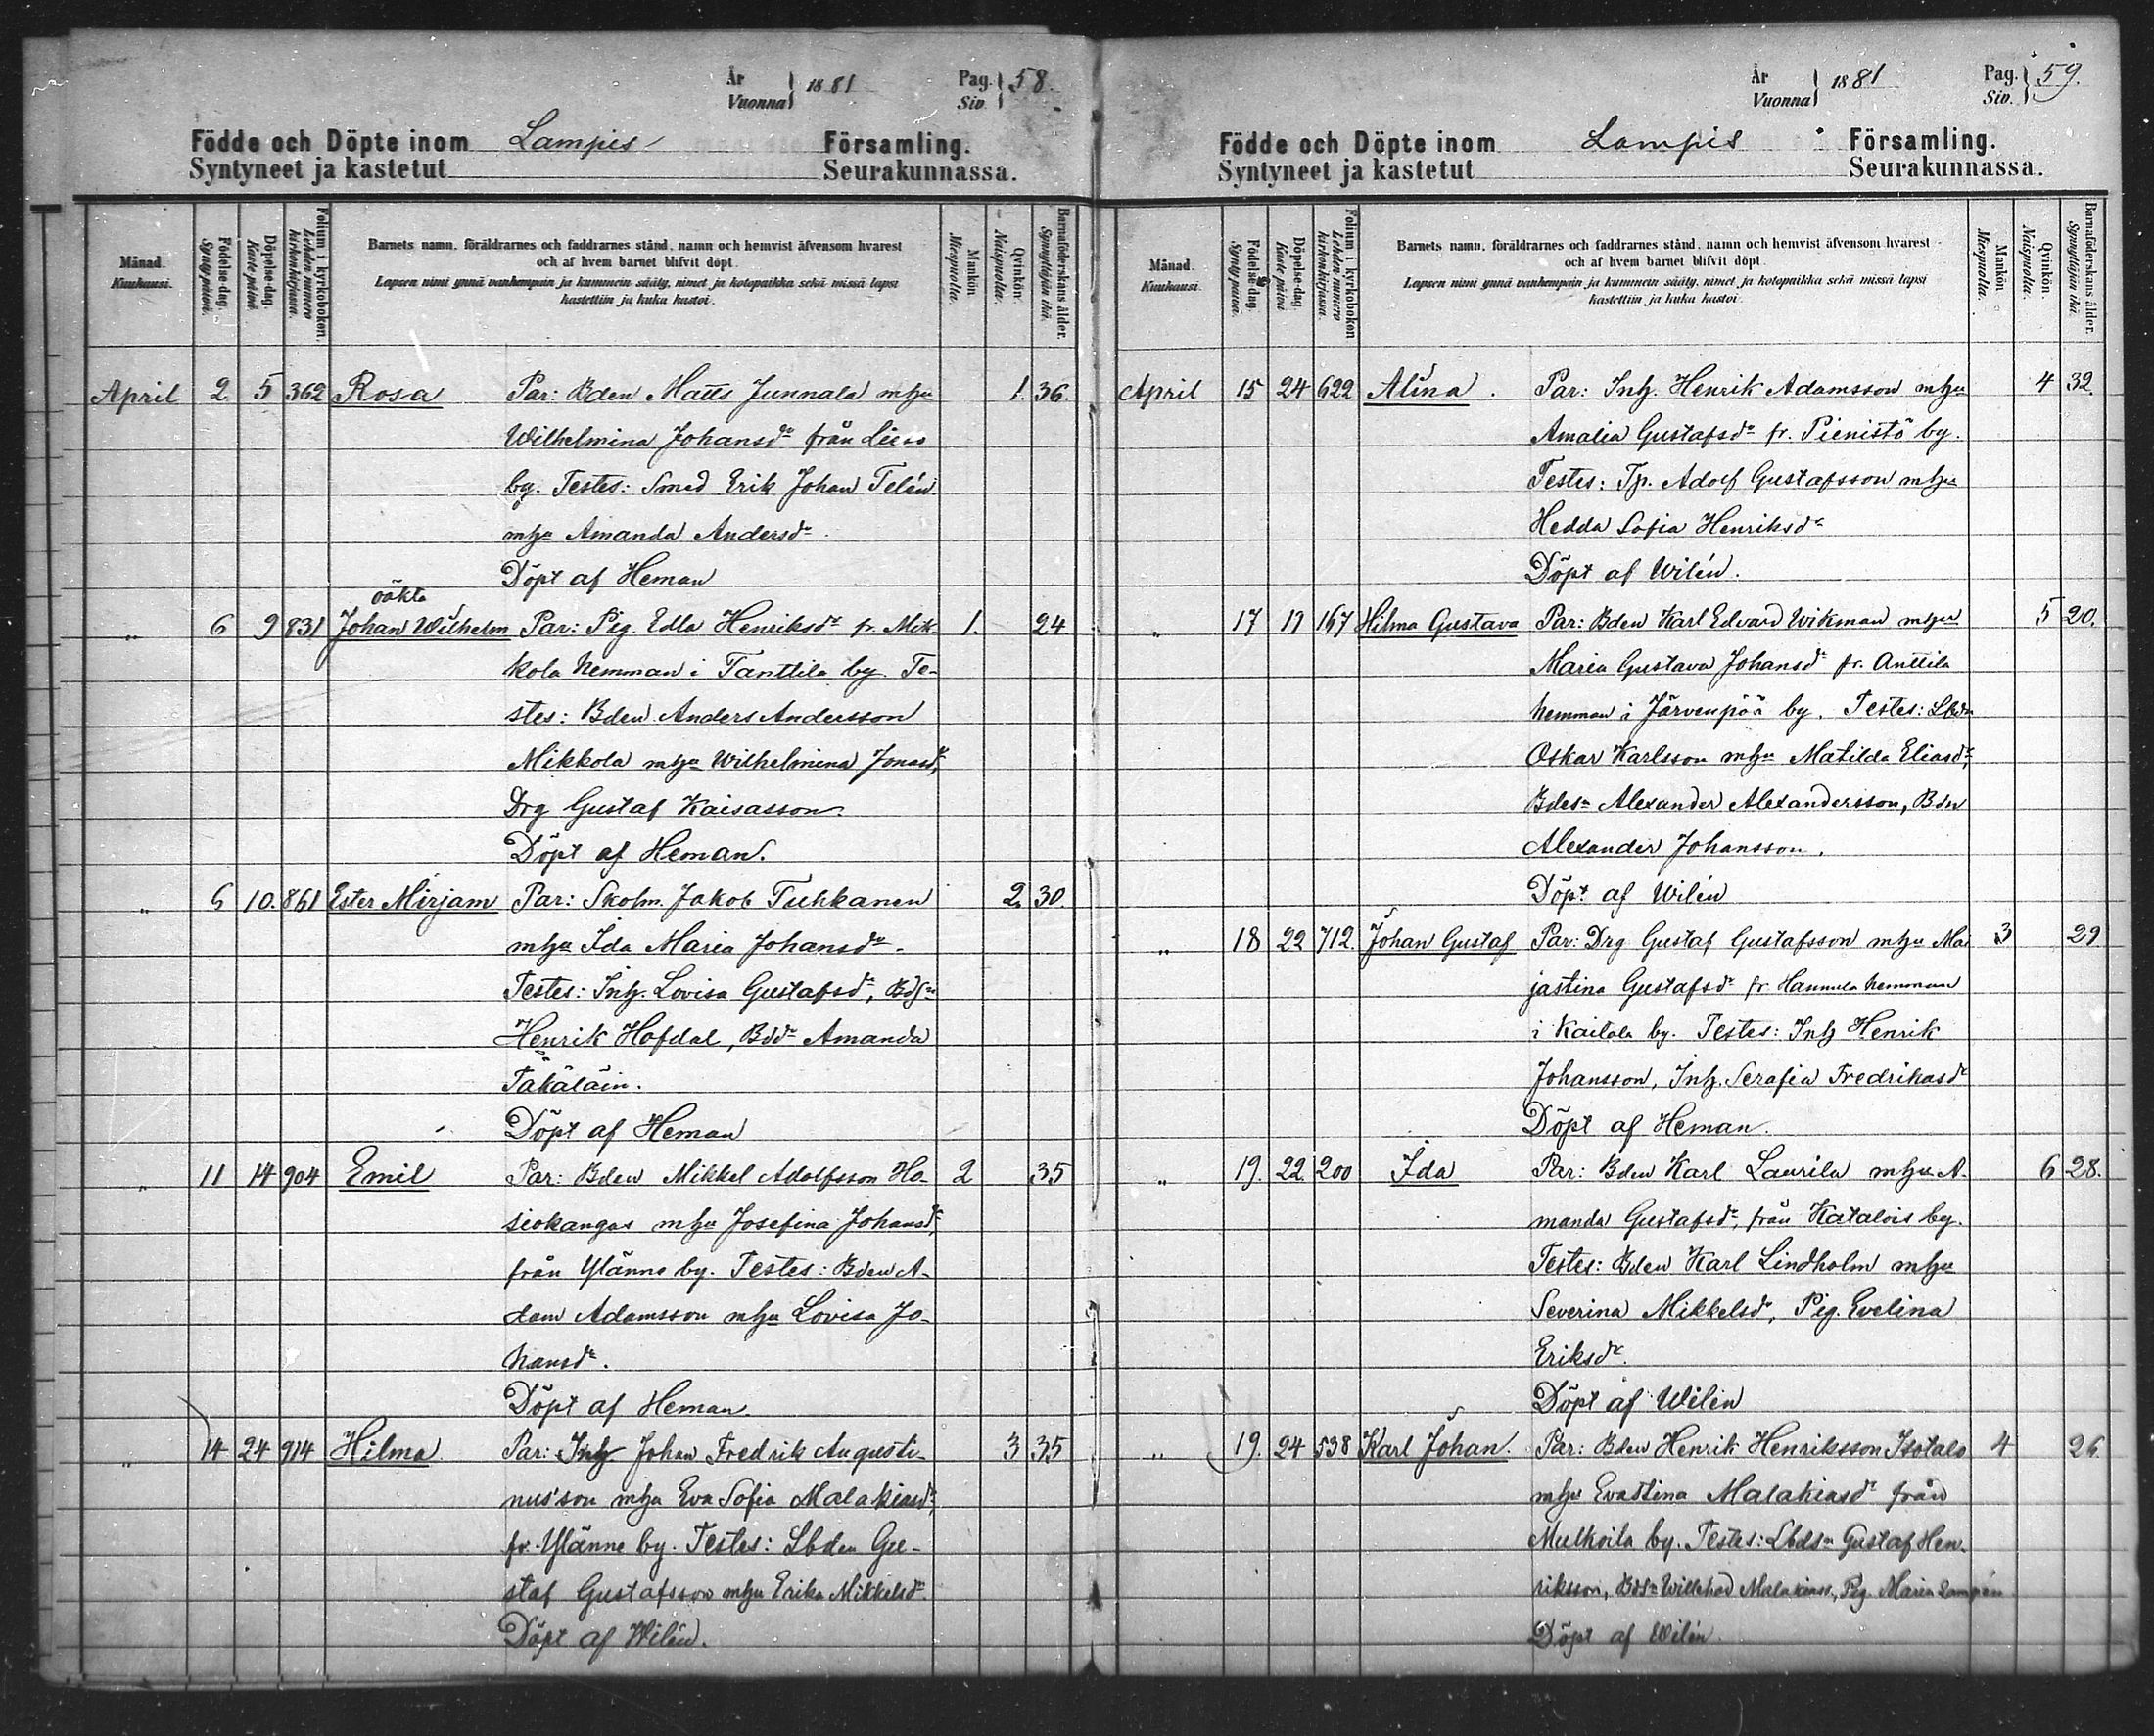 År
Vuonna } 1881
Pag.
Siv. } 58.
Födde och Döpte inom Lampis Församling.
Syntyneet ja kastetut Seurakunnassa.
Månad.
Kuukausi.
Födelse-dag.
Syntypäivä.
Döpelse-dag.
Kastepäivä.
Folium i kyrkoboken
Lehden numero
kirkonkirjassa.
Barnets namn, föräldrarnes och faddrarnes stånd, namn och hemvist äfvensom hvarest
och af hvem barnet blifvit döpt.
Lapsen nimi ynnä vanhempain ja kummein sääty, nimet ja kotopaikka sekä missä lapsi
kastettiin ja kuka kastoi.
Mankön
Miespuolia.
Qvinkön.
Naispuolia.
Barnaföderskans ålder.
Synnyttäjän ikä.
April 2 5 362 Rosa Par: Bden Matts Junnala mhu 1. 36.
Wilhelmina Johansdr från Lieso
by. Testes: Smed Erik Johan Telén
mhu Amanda Andersdr
Döpt af Heman
oäkta
„ 6 9 831 Johan Wilhelm Par: Pig. Edla Henriksdr fr. Mik- 1. 24
kola hemman i Tanttila by Te-
stes: Bden Anders Andersson
Mikkola mhu Wilhelmina Jonasdr,
Drg Gustaf Kaisasson
Döpt af Heman.
„ 6 10. 861 Ester Mirjam Par: Skolm. Jakob Tuhkanen 2. 30.
mhu Ida Maria Johansdr.
Testes: Inh. Lovisa Gustafsdr, Bdsn
Henrik Hofdal, Bddr Amanda
Takäläin.
Döpt af Heman
„ 11 14 904 Emil Par: Bden Mikkel Adolfsson Ho- 2 35
siokangas mhu Josefina Johansdr
från Ylänne by. Testes: Bden A-
dam Adamsson mhu Lovisa Jo-
hansdr.
Döpt af Heman.
„ 14 24 914 Hilma Par: Inh Johan Fredrik Augusti- 3 35
nus'son mhu Eva Sofia Malakiasdr,
fr. Ylänne by. Testes: Lbden Gu-
staf Gustafsson mhu Erika Mikkelsdr
Döpt af Wilén.
År
Vuonna } 1881
Pag.
Siv. } 59.
Födde och Döpte inom Lampis Församling.
Syntyneet ja kastetut Seurakunnassa.
Månad.
Kuukausi.
Födelse-dag.
Syntypäivä.
Döpelse-dag.
Kastepäivä
Folium i kyrkoboken
Lehden numero
kirkonkirjassa.
Barnets namn, föräldrarnes och faddrarnes stånd, namn och hemvist äfvensom hvarest
och af hvem barnet blifvit döpt.
Lapsen nimi ynnä vanhempain ja kummein sääty, nimet ja kotopaikka sekä missä lapsi
kastettiin ja kuka kastoi.
Mankön
Miespuolia.
Qvinkön.
Naispuolia.
Barnaföderskans ålder.
Synnyttäjän ikä.
April 15 24 622 Alina. Par: Inh. Henrik Adamsson mhu 4 32.
Amalia Gustafsdr fr. Pienistö by.
Testes: Tp. Adolf Gustafsson mhu
Hedda Sofia Henriksdr
Döpt af Wilén.
„ 17 17 167 Hilma Gustava Par: Bden Karl Edvard Wikman mhu 5 20.
Maria Gustava Johansdr fr. Anttila
hemman i Järvenpää by. Testes: Lbdn
Oskar Karlsson mhu Matilda Eliasdr,
Bdesn Alexander Alexandersson, Bden
Alexander Johansson.
Döpt af Wilén
„ 18 22 712. Johan Gustaf Par: Drg Gustaf Gustafsson mhu Ma- 3 29
jastina Gustafsdr fr. Hannula hemman
i Kaitala by. Testes: Inh Henrik
Johansson, Inh. Serafia Fredrikasdr
Döpt af Heman.
„ 19. 22. 200 Ida Par: Bden Karl Laurila mhu A- 6 28.
manda Gustafsdr, från Katalois by.
Testes: Bden Karl Lindholm mhu
Severina Mikkelsdr, Pig. Evelina
Eriksdr.
Döpt af Wilén
„ 19. 24 538 Karl Johan. Par: Bden Henrik Henriksson Isotalo 4 26.
mhu Evastina Malakiasdr från
Mulkoila by. Testes: Lbdsn Gustaf Hen-
riksson, Bdsn Willehad Malakiass., Pig. Maria Lampén
Döpt af Wilén.